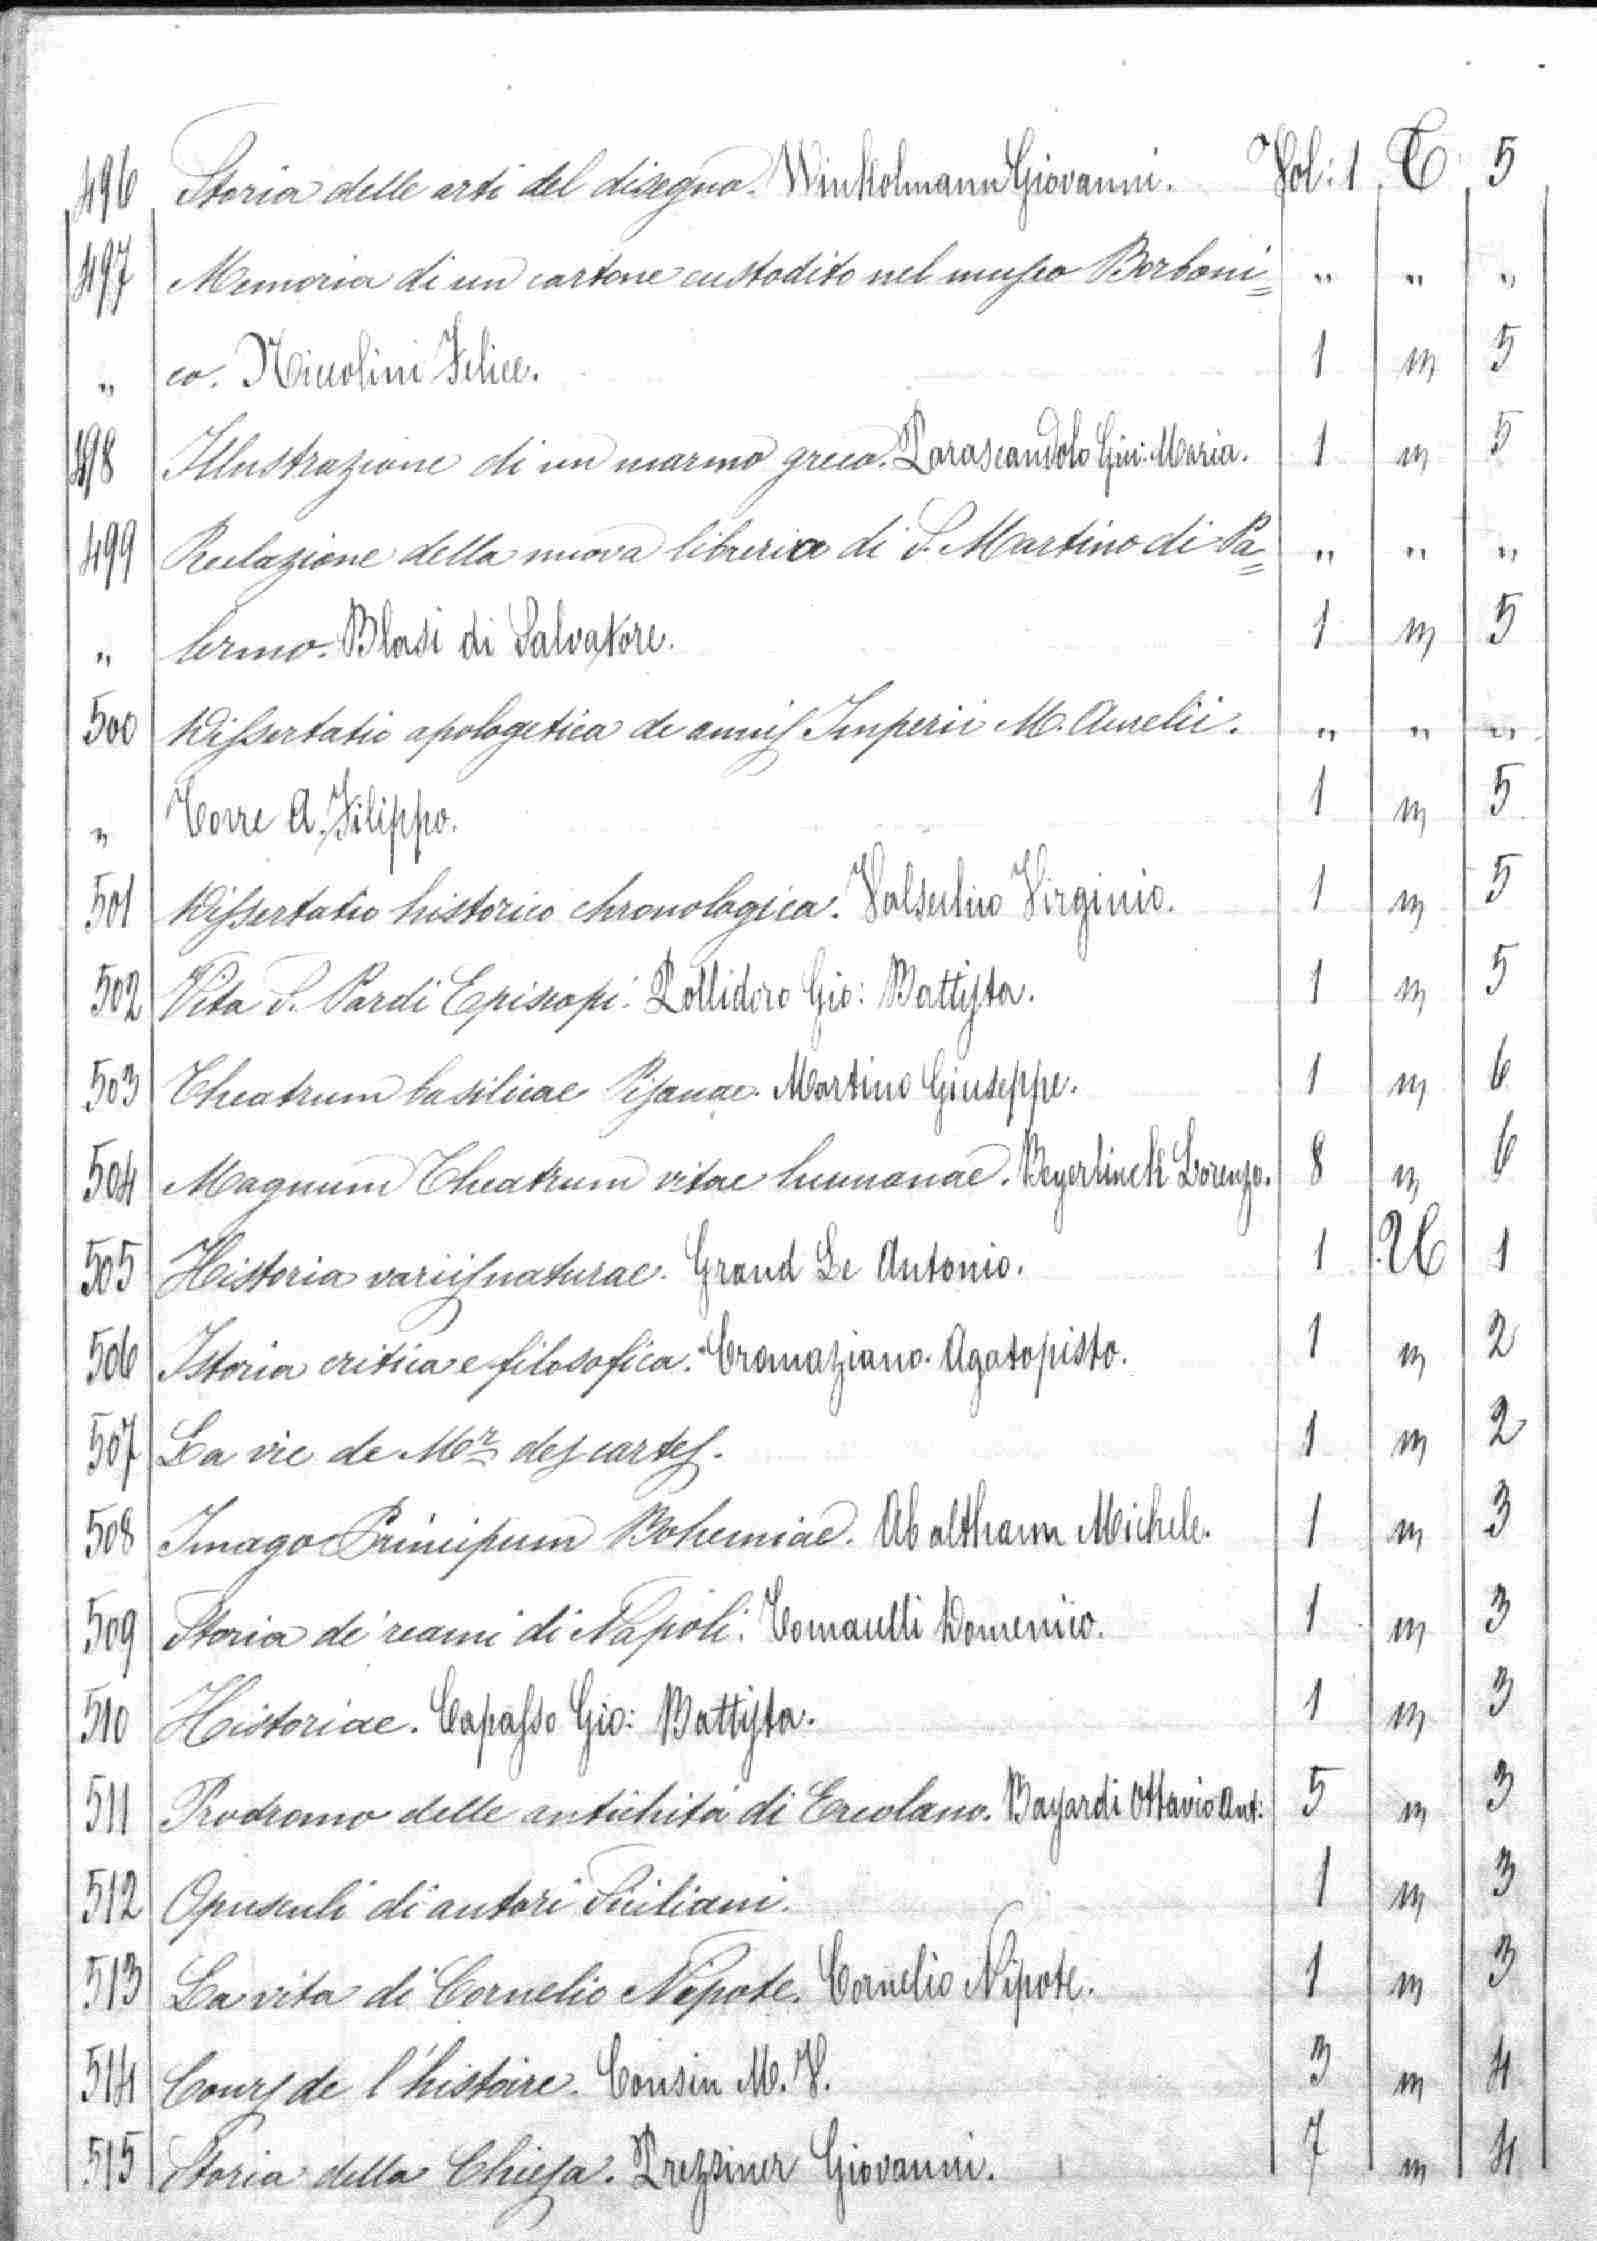 496 Storia delle arti del disegno. Winkolmann Giovanni. Vol: 1 T 5
497 Memoria di un cartone custodito nel museo Borboni= " " "
" co. Niccolini Felice. 1 m 5
498 Illustrazione di un marmo greco. Parascandolo Giu: Maria. 1 m 5
499 Relazione della nuova libreria di S. Martino di Pa= " " "
" lermo. Blasi di Salvatore. 1 m 5
500 Dissertatio apologetica de annis Imperii M. Aurelii. " " "
" Torre A. Filippo. 1 m 5
501 Dissertatio historico chronologica. Valsechio Virginio. 1 m 5
502 Vita S. Pardi Episcopi. Pollidoro Gio: Battista. 1 m 5
503 Theatrum basilicae Pisanae. Martino Giuseppe. 1 m 6
504 Magnum Theatrum vitae humanae. Beyerlinck Lorenzo. 8 m 6
505 Historia variis naturae. Grand Le Antonio. 1 U 1
506 Istoria critica e filosofica. Cromaziano Agatopisto. 1 m 2
507 La vie de Mr des cartes. 1 m 2
508 Imago Principum Bohemiae. Ab althann Michele. 1 m 3
509 Storia de' reami di Napoli. Tomacelli Domenico. 1 m 3
510 Historiae. Capasso Gio: Battista. 1 m 3
511 Prodromo delle antichità di Ercolano. Bayardi Ottavio Ant: 5 m 3
512 Opusculi di autori Siciliani. 1 m 3
513 La vita di Cornelio Nipote. Cornelio Nipote. 1 m 3
514 Cours de l'histoire. Cousin M. V. 3 m 4
515 Storia della Chiesa. Prezziner Giovanni. 7 m 4